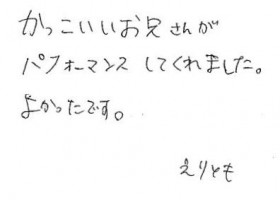 かっこいいお兄さんが
パフォーマンスしてくれました。
よかったです。
えりとも